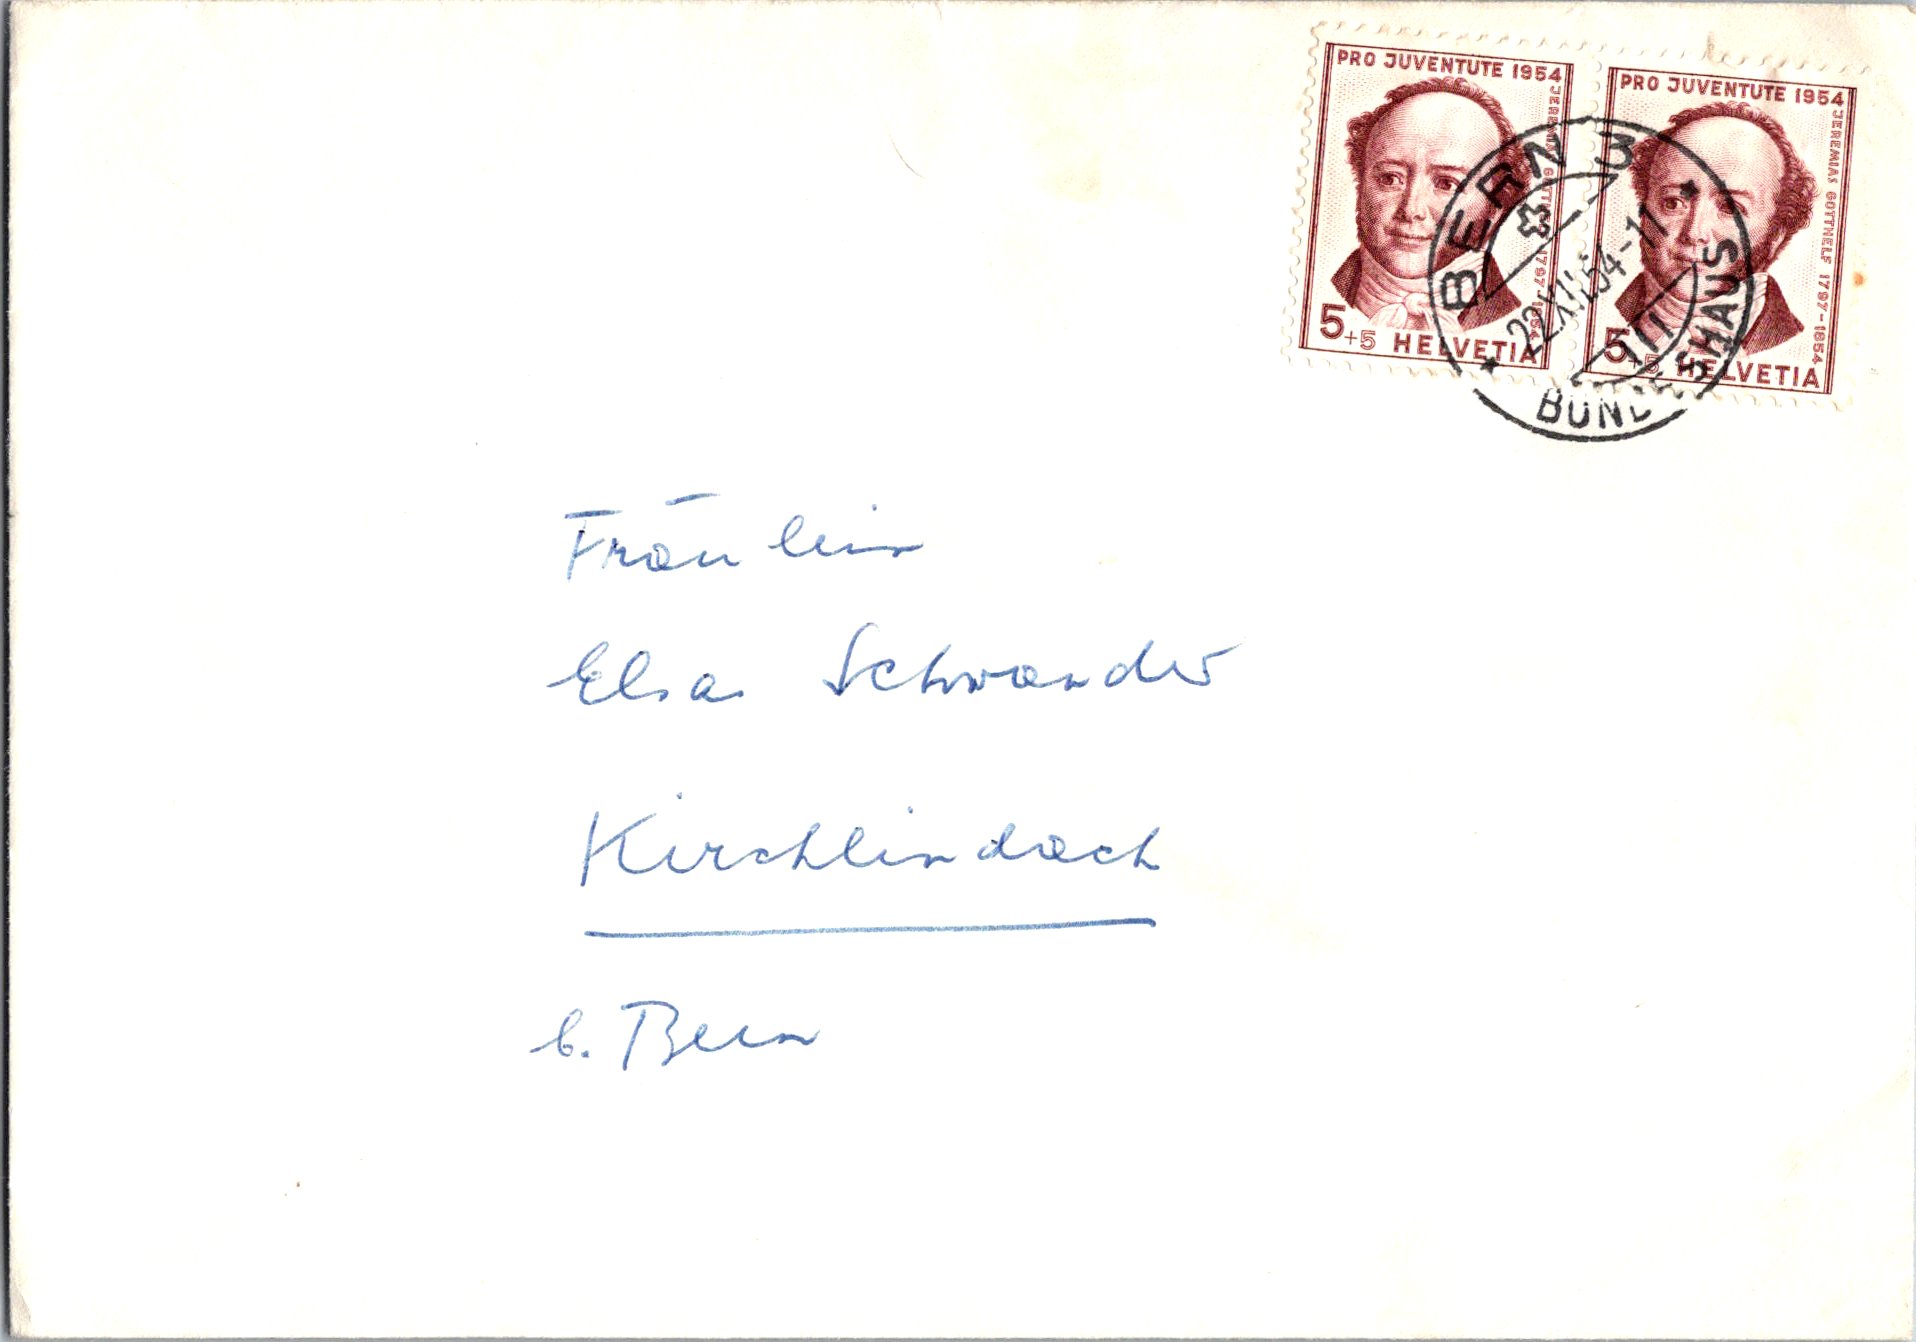 PRO JUVENTUTE 1954
JEREMIAS GOTTHELF 1797-1854
5+5 HELVETIA
PRO JUVENTUTE 1954
JEREMIAS GOTTHELF 1797-1854
5+5 HELVETIA
BERN 3
22.XII.54-11
III
BUNDESHAUS
Fräulein
Elsa Schwander
Kirchlindach
b. Bern